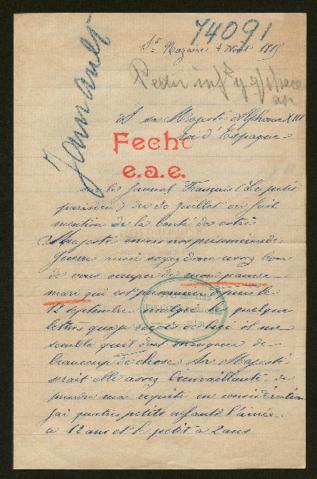 74091
St Nazaire 4 Août 191
Jamault
Pedir inf y
A sa Majesté Alphonse XIII
roi d'Espagne
Fecht
e.a.e.
le Journal Français (Le petit
parisien) de Juillet on fait
mention de la bonté de votre
Majesté envers nos prisonniers de
guerre aussi soyez donc assez bon
de vous occuper de mon pauvre
mari qui est prisonnier depuis le
13 septembre malgré les quelques
lettres que je reçois de lui il me
semble qu'il doit manquer de
beaucoup de chose Sa Majesté
serait elle assez bienveillante de
prendre ma requête en considération
j'ai quatre petits enfants l'aînée
a 12 ans et le petit a 2 ans